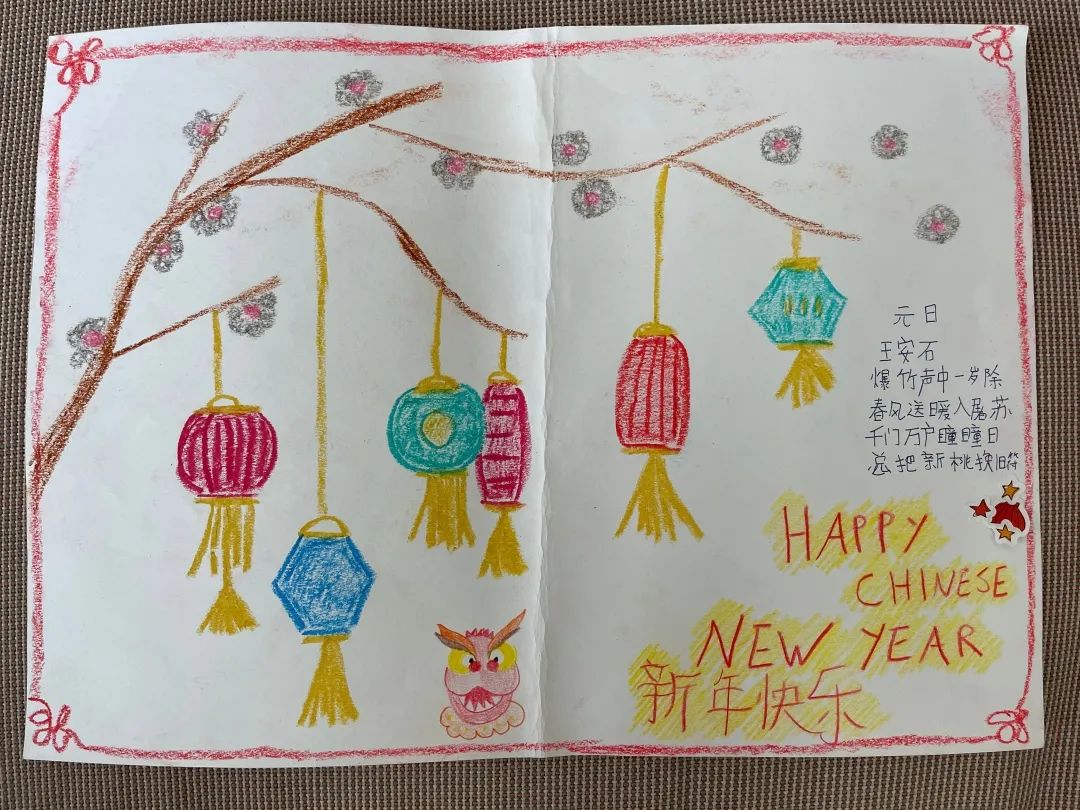 元日
王安石
爆竹声中一岁除
春风送暖入屠苏
千门万户瞳瞳日
总把新桃换旧符
HAPPY
CHINESE
NEW YEAR
新年快乐